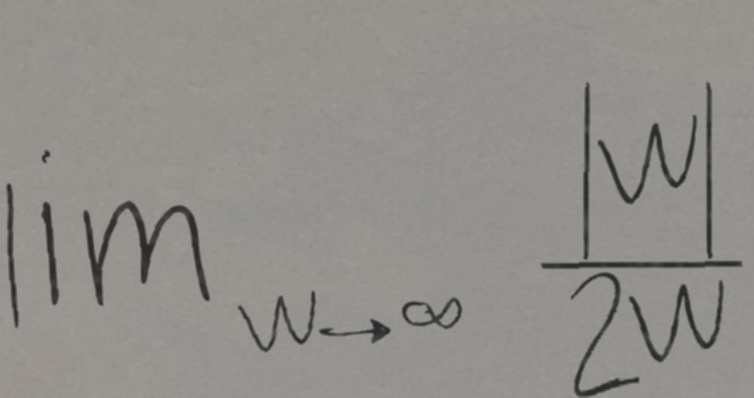 lim w→∞ |w|
2w